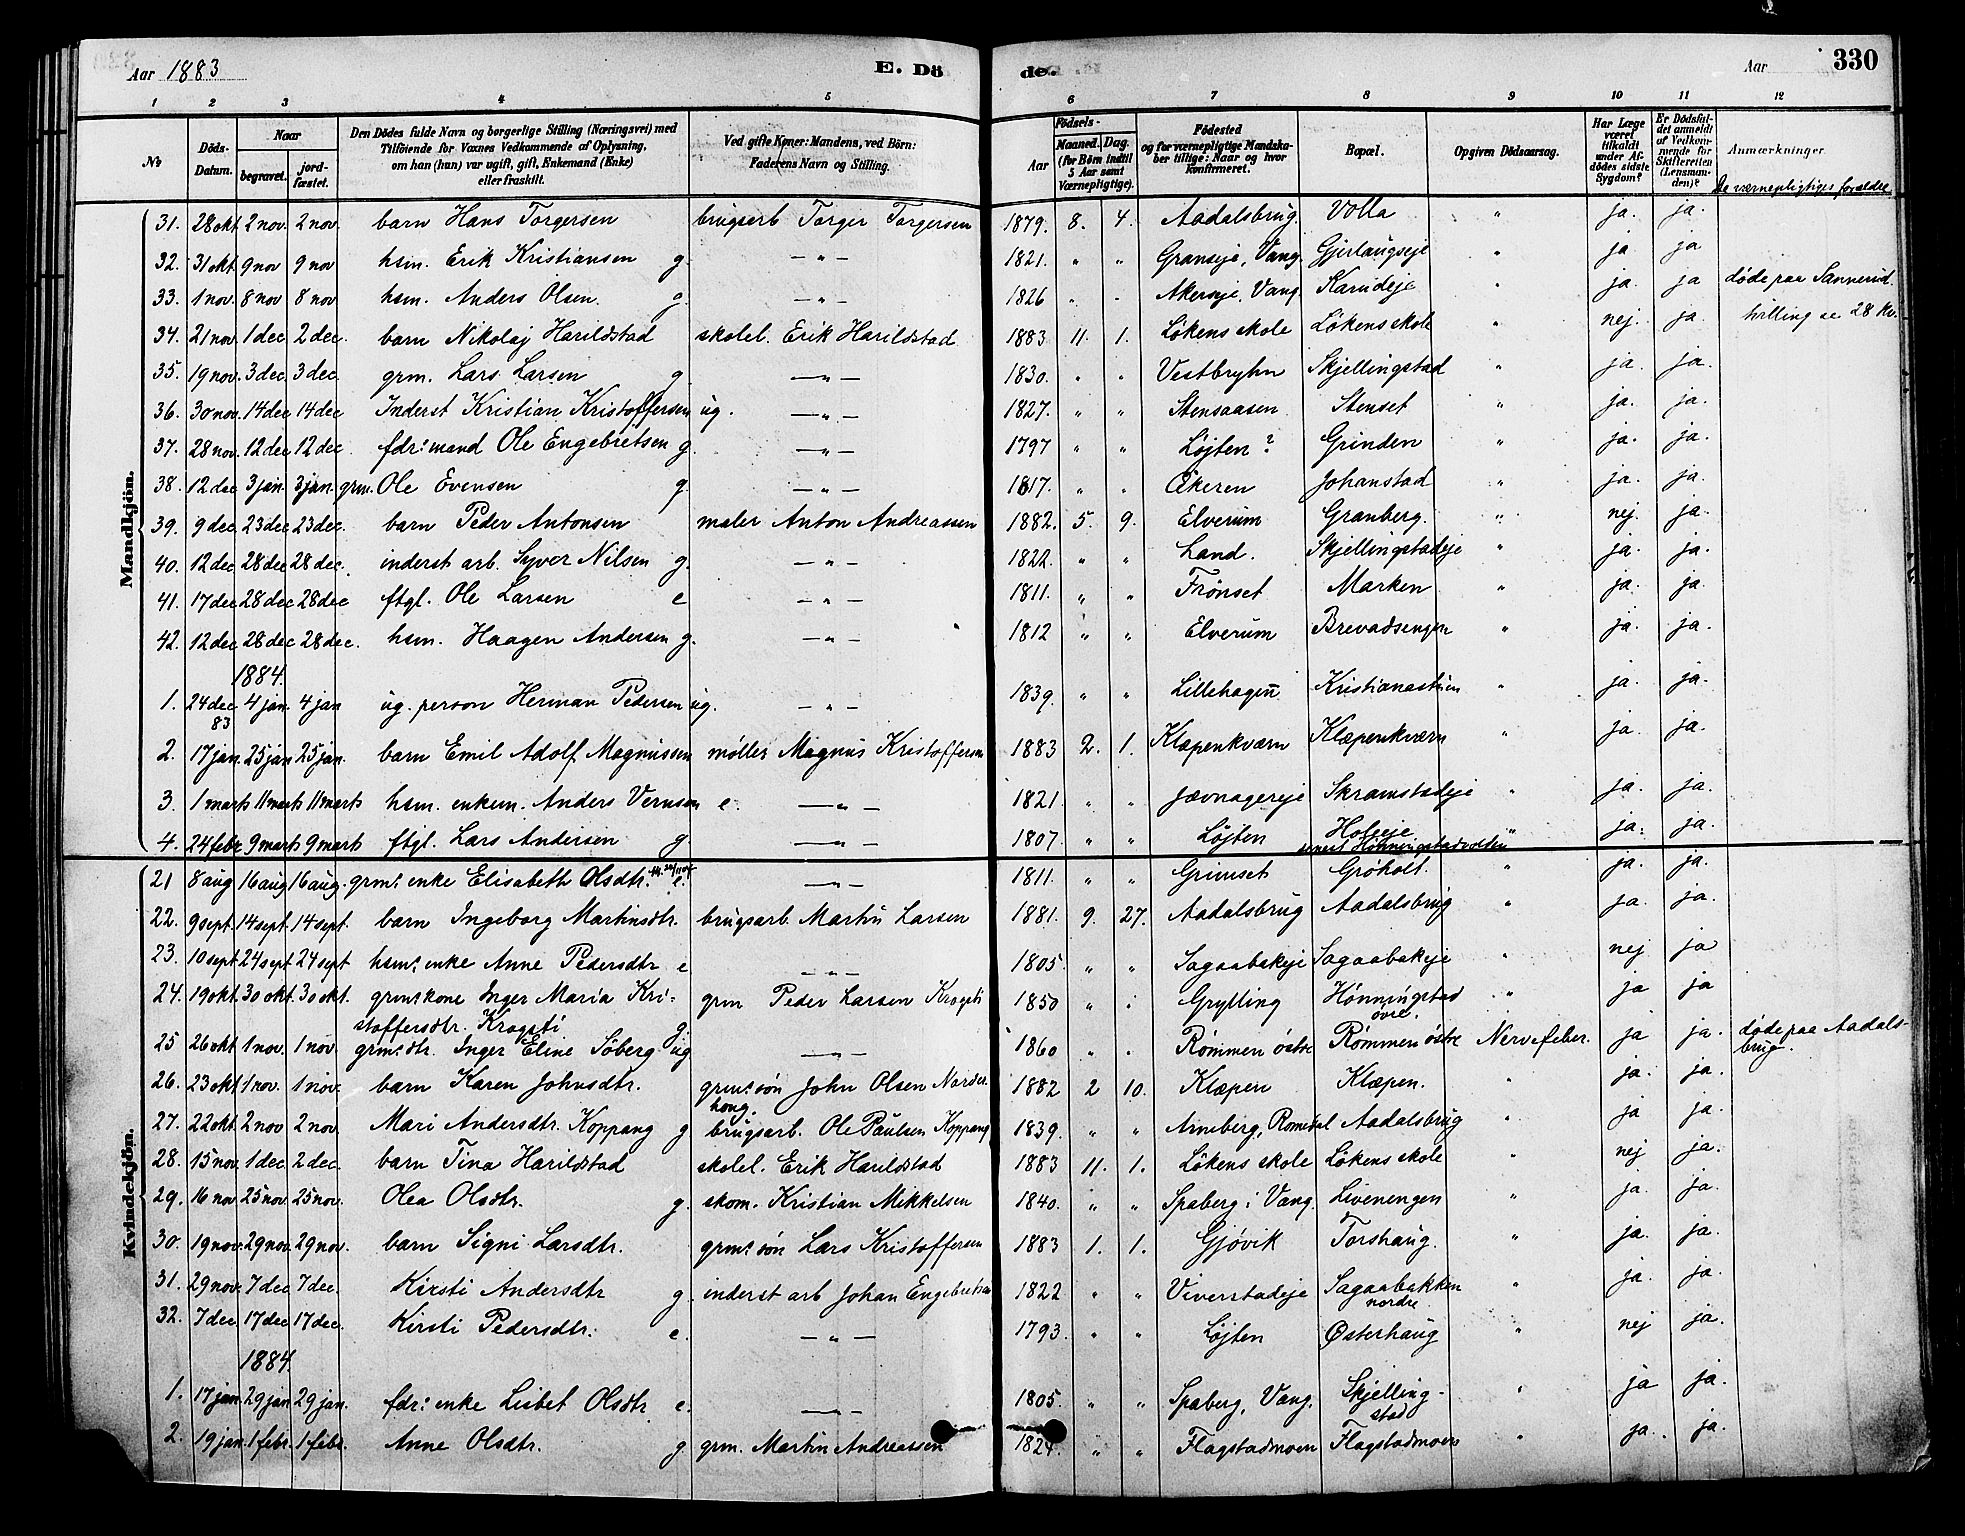 Aar 1883 E. Dö de. Aar 330
1 2 3 4 5 6 7 8 9 10 11 12
No Döds-Datum. Naar begravet. jord-fæstet. Den Dödes fulde Navn og borgerlige Stilling (Næringsvei) med Tilföiende for Voxnes Vedkommende af Oplysning, om han (hun) var ugift, gift, Enkemand (Enke) eller fraskilt. Ved gifte Koner: Mandens, ved Börn: Faderens Navn og Stilling. Födsels- Aar Maaned. Dag. (for Börn indtil 5 Aar samt Værnepligtige). Födested og for værnepligtige Mandska-ber tillige: Naar og hvor konfirmeret. Bopæl. Opgiven Dödsaarsag. Har Læge været tilkaldt under Af-dödes sidste Sygdom? Er Dödsfal-det anmeldt af Vedkom-mende for Skifteretten (Lensman-den)? Anmærkninger.
De værnepligtiges forældre
Mandkjön.
31. 28 okt 2 nov. 2 nov. barn Hans Torgersen brugsarb Torger Torgersen 1879. 8. 4. Aadalsbrug. Volla " ja. ja.
32. 31 okt. 9 nov 9 nov hsm. Erik Kristiansen g. — " — 1821. " " Granseje, Vang. Gjirlaugseje " ja ja
33. 1 nov. 8 nov 8 nov hsm. Anders Olsen. g. — " — 1826 " " Akerseje, Vang. Karudeje " ja. ja døde paa Sannerud.
34. 21 nov. 1 dec 2 dec. barn Nikolaj Harildstad skolel. Erik Harildstad 1883. 11. 1. Løkens skole Løkens skole " nej. ja. tvilling se 28 Kv.
35. 19 nov. 3 dec. 3 dec. grm. Lars Larsen g. — " — 1830. " " Vestbryhn Skjellingstad " ja. ja.
36. 30 nov. 14 dec 14 dec Inderst Kristian Kristoffersen ug. — " — 1827. " " Stensaasen Stenset " ja. ja.
37. 28 nov. 12 dec 12 dec. fdr: mand Ole Engebretsen g. — " — 1797 " " Løjten? Grinden " ja. ja.
38. 12 dec 3 jan. 3 jan. grm. Ole Evensen g. — " — 1817. " " Økeren Johanstad " ja. ja.
39. 9 dec. 23 dec 23 dec. barn Peder Antonsen maler Anton Andreassen 1882. 5. 9. Elverum Granberg. " nej. ja.
40. 12 dec 28 dec 28 dec. inderst arb. Syver Nilsen g. — " — 1822. " " Land. Skjellingstadeje " ja. ja.
41. 17 dec 28 dec 28 dec ftgl. Ole Larsen e — " — 1811. " " Frønset Marken " ja. ja.
42. 12 dec 28 dec 28 dec. hsm. Haagen Andersen g. — " — 1812 " " Elverum Brevadsengen " ja. ja.
1884.
1. 24 dec 83 4 jan. 4 jan ug. person Herman Pedersen ug. — " — 1839. " " Lillehagen Kristianastuen " ja. ja.
2. 17 jan. 25 jan 25 jan. barn Emil Adolf Magnussen møller Magnus Kristoffersen 1883 2. 1. Klæpenkværn Klæpenkværn " ja. ja.
3. 1 marts 11 marts 11 marts hsm. enkem. Anders Vernsen e. — " — 1821. " " Jævnagereje Skramstadeje " ja. ja.
4. 24 febr 9 marts 9 marts ftgl. Lars Andersen g. — " — 1807. " " Løjten Holseje " ja. ja.
Kvindekjön.
21 8 aug 16 aug 16 aug. grms: enke Elisabeth Olsdtr. e. — " — 1811. " " Grimset Grøholt. " ja. ja.
22. 9 sept. 14 sept. 14 sept. barn Ingeborg Martinsdtr. brugsarb. Martin Larsen 1881. 9. 27. Aadalsbrug Aadalsbrug " ja. ja.
23. 10 sept 24 sept 24 sept hsms: enke Anne Pedersdtr e — " — 1805. " " Sagaabakeje Sagaabakeje " nej ja
24. 19 okt. 30 okt. 30 okt. grms: kone Inger Maria Kri-
stoffersdtr. Krogsti g. grm Peder Larsen Krogsti 1850 " " Grylling Hønningstad øvre. " ja ja
25 26 okt 1 nov. 1 nov. grms: dtr. Inger Eline Søberg ug — " — 1860 " " Rømmen østre Rømmen østre Nervefeber. ja ja. døde paa Aadals-
brug.
26. 23 okt 1 nov. 1 nov. barn Karen Johnsdtr. grms: søn John Olsen Norder-
hong. 1882 2 10. Klæpen Klæpen. " ja. ja.
27. 22 okt. 2 nov 2 nov. Mari Andersdtr. Koppang g brugsarb. Ole Paulsen Koppang 1839. " " Arneberg, Romedal Aadalsbrug " ja ja.
28. 15 nov. 1 dec. 2 dec. barn Tina Harildstad skolel. Erik Harildstad 1883 11. 1. Løkens skole Løkens skole " nej ja.
29. 16 nov 25 nov. 25 nov. Olea Olsdtr. g. skom. Kristian Mikkelsen 1840. " " Spaberg i Vang. Livenengen " ja. ja.
30. 19 nov. 29 nov. 29 nov. barn Signi Larsdtr. grms: søn Lars Kristoffersen 1883 1. 1. Gjøvik Torshaug. " ja. ja.
31. 29 nov. 7 dec. 7 dec. Kirsti Andersdtr g. inderst arb Johan Engebretsen 1822 " " Viverstadeje Sagaabakken nordre. " ja. ja.
32. 7 dec 17 dec 17 dec. Kirsti Pedersdtr. e. — " — 1793. " " Løjten Østerhaug " nej ja.
1884.
1. 17 jan. 29 jan 29 jan. fdr: enke Lisbet Olsdtr. e. — " — 1805. " " Spaberg, Vang. Skjelling-
stad " ja ja.
2. 19 jan. 1 febr. 1 febr. Anne Olsdtr. g. grm. Martin Andreassen 1824. " " Flagstadmoen Flagstadmoen " ja. ja.